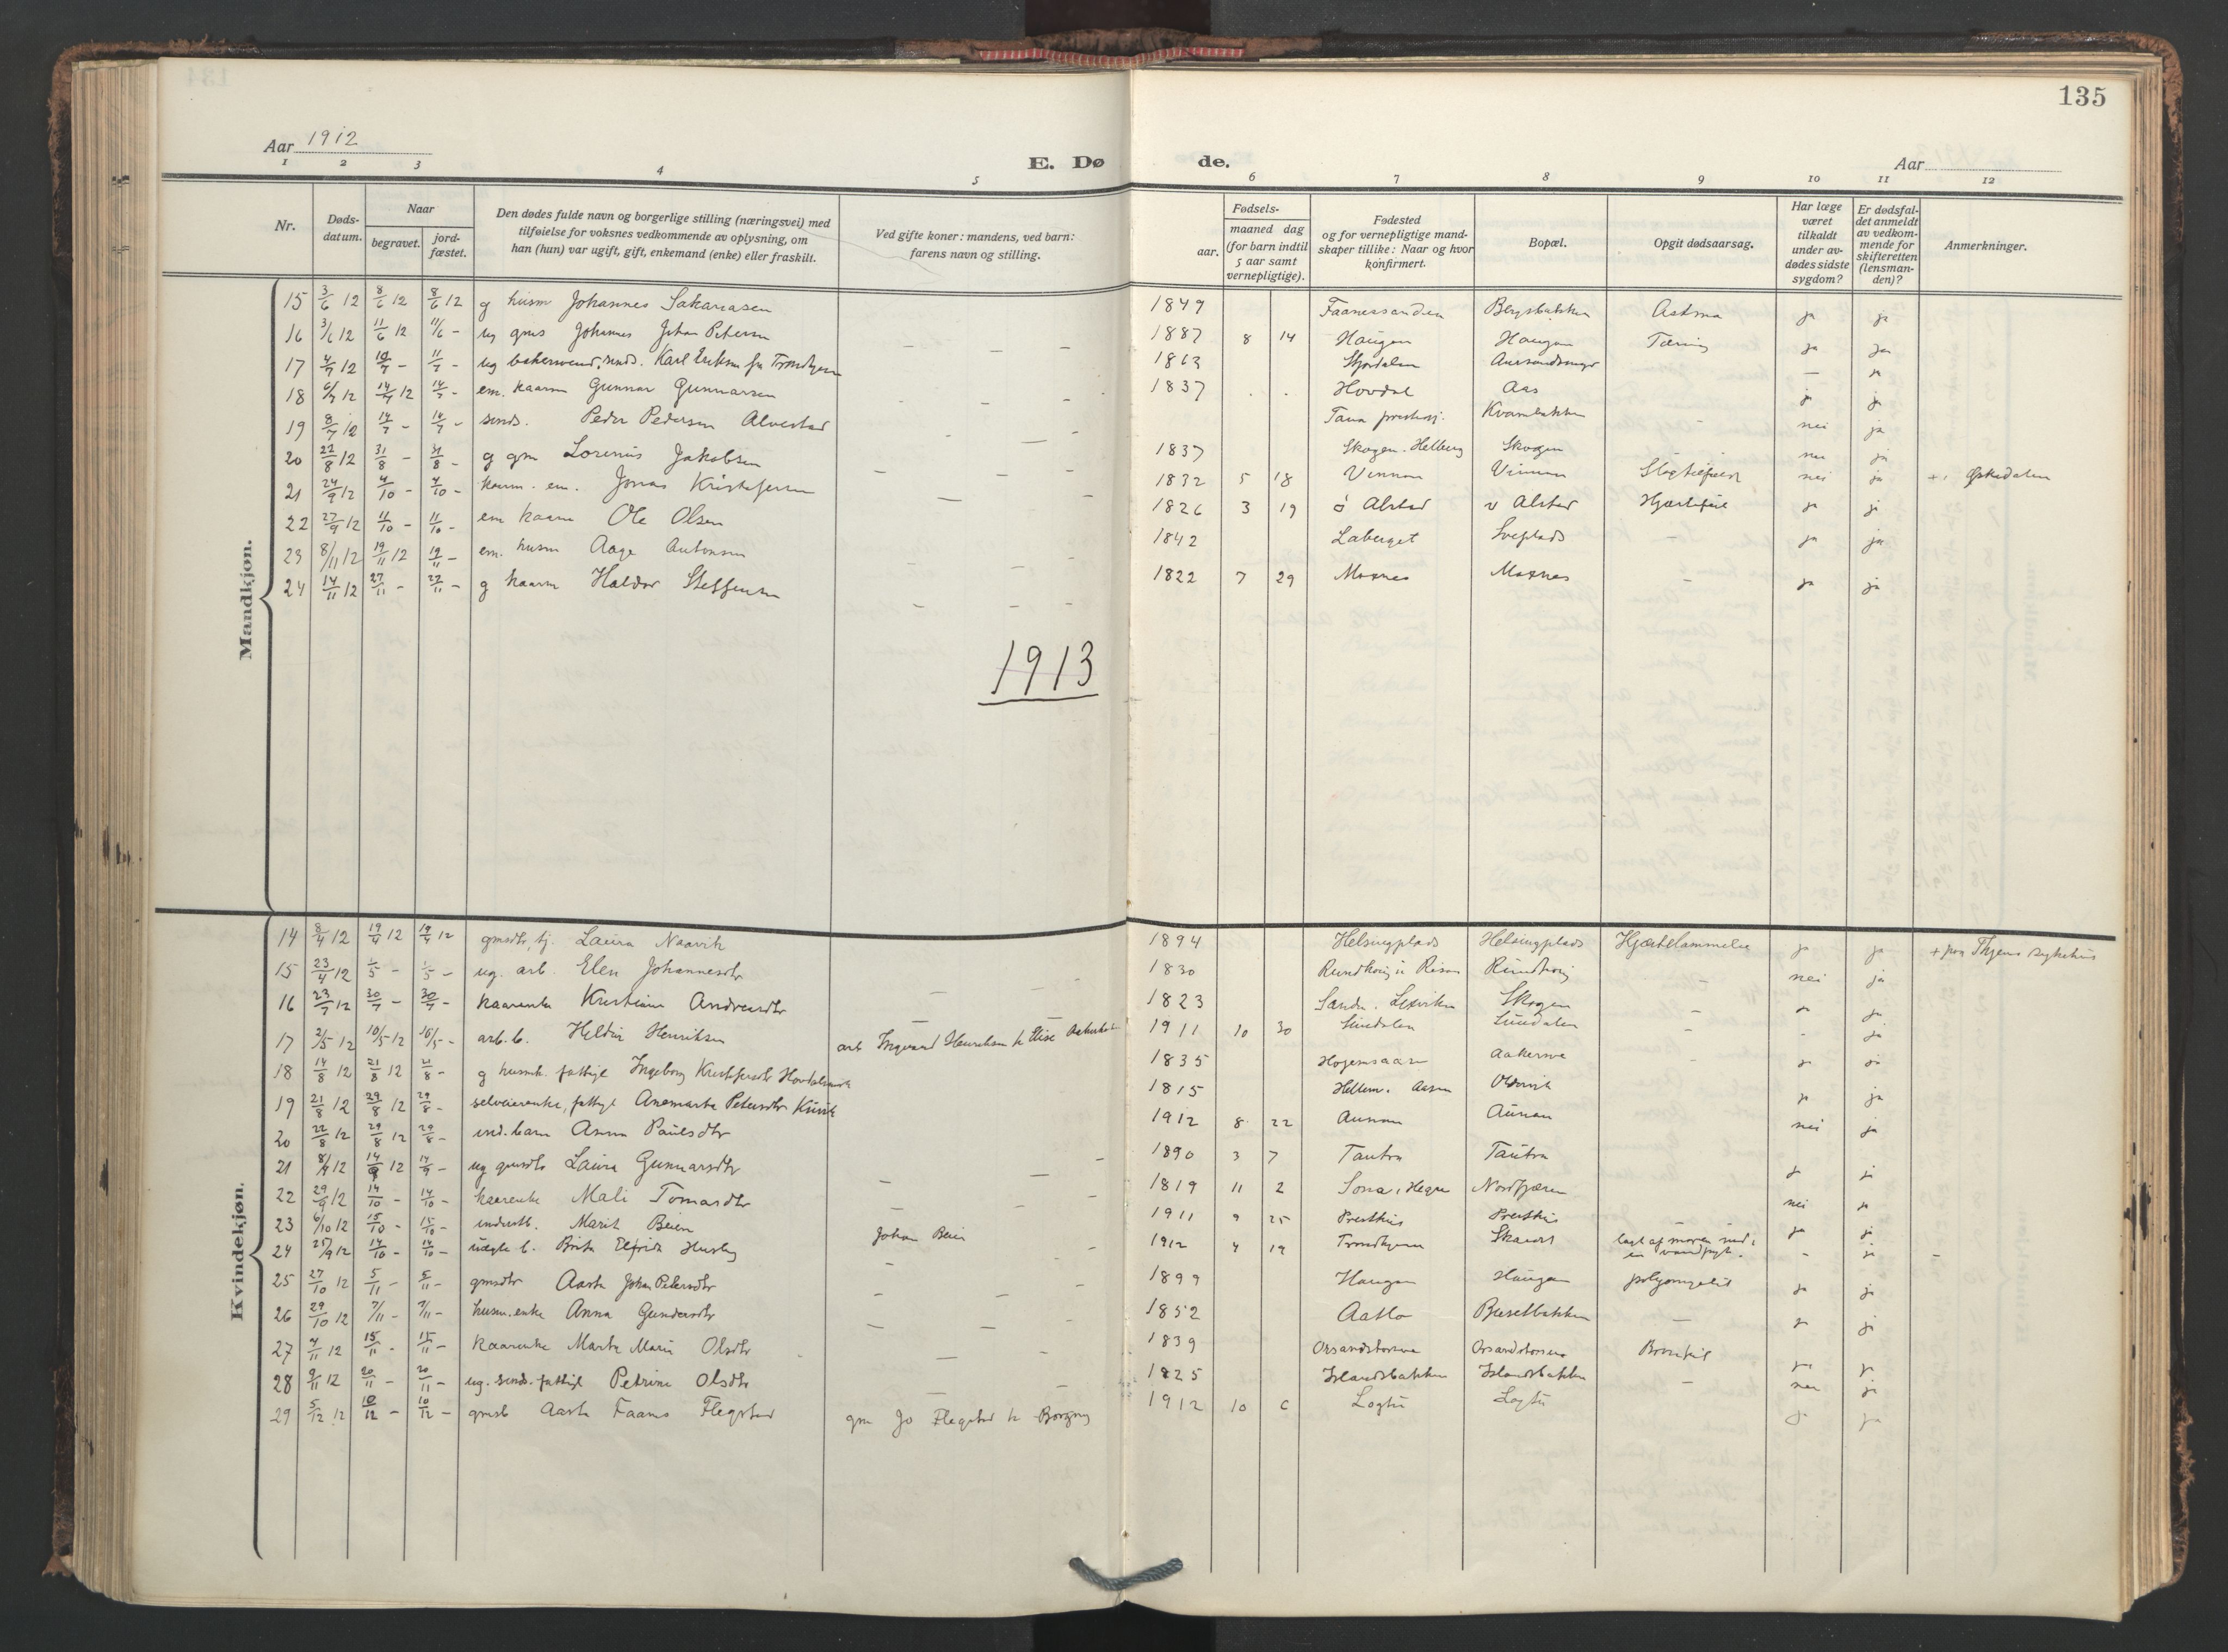 135
Aar 1912
E. Dø
de.
Aar
1 2 3 4 5 6 7 8 9 10 11 12
Nr.
Døds-
datum.
Naar
begravet.
jord-
fæstet.
Den dødes fulde navn og borgerlige stilling (næringsvei) med
tilføielse for voksnes vedkommende av oplysning, om
han (hun) var ugift, gift, enkemand (enke) eller fraskilt.
Ved gifte koner: mandens, ved barn:
farens navn og stilling.
Fødsels-
aar.
maaned dag
(for barn indtil
5 aar samt
vernepligtige).
Fødested
og for vernepligtige mand-
skaper tillike: Naar og hvor
konfirmert.
Bopæl.
Opgit dødsaarsag.
Har læge
været
tilkaldt
under av-
dødes sidste
sygdom?
Er dødsfal-
det anmeldt
av vedkom-
mende for
skifteretten
(lensman-
den)?
Anmerkninger.
Mandkjøn.
15 3/6 12 8/6 12 8/6 12 g husm Johannes Sakariasen 1849 Faanessanden Bergsbakken Astma ja ja
16 3/6 12 11/6 12 11/6 - ug gms Johannes Johan Petersen — — — 1887 8 14 Haugan Haugan Tæring ja ja
17 4/7 12 11/7 - ug bakersvend, sinds. Karl Eriksen fra Trondhjem 1863 Stjørdalen — ja
18 6/7 12 14/7 12 14/7 - em. kaarm Gunnar Gunnarsen — — — 1837 Hovdal Aas ja ja
19 8/7 12 14/7 - 14/7 - sinds. Peder Pedersen Alvestad — — Kvambakken - nei ja
20 22/8 12 31/8 - 31/8 - g gm Lorenus Jakobsen — — — 1837 Skogen. Skogen nei ja
21 24/9 12 4/10 - 4/10 - kaarm. em. Jonas Kristofersen — — 1832 5 18 Vinnan Vinnan nei ja
22 27/9 12 11/10 - 11/10 - em kaarm Ole Olsen 1826 3 19 ø Alstad v Alstad Hjertefeil ja ja
23 8/11 12 19/11 12 19/11 - em. husm Aage Antonsen — — — 1842 Laberget Sveplads - ja ja
24 14/11 12 27/11 - 27/11 - g kaarm Haldor Steffensen — — — 1822 7 29 Moxnes Moxnes - ja ja
1913
Kvindekjøn.
14 8/4 12 19/4 12 19/4 12 gmsdtr, tj. Laura Naavik 1894 Helsingplads Helsingplads Hjertelammelse ja ja + paa Thjems sykehus
15 23/4 12 1/5 - 1/5 - ug. arb. Elen Johannesdtr — — 1830 Rundhaug - nei ja
16 23/7 12 30/7 - 30/7 - kaarenke Kristiane Andreasdtr — — 1823 Skogen - ja ja
17 2/5 12 10/5 12 10/5 - arb. b. Heldur Henriksen arb Ingvard Henriksen h Elise 1911 10 30 Sundalen Sundalen - - ja
18 14/8 12 21/8 12 21/8 - g husmk. fattigl Ingeborg Kristofersdtr 1835 - ja ja
19 21/8 12 29/8 12 29/8 - selveierenke, fattigl Anemarta Petersdtr 1815 ja ja
20 22/8 12 29/8 12 29/8 - ind. barn Anna Paulsdtr 1912 8 22 Aunan Aunan nei ja
21 8/9 12 14/9 12 14/9 - ug gmsdtr Laura Gunnarsdtr — — — 1890 3 7 Tautra Tautra ja ja
22 29/9 12 14/10 - 14/10 - kaarenke Mali Tomasdtr — — 1819 11 2 Sona i Hegra Nordfjæren nei ja
23 6/10 12 15/10 - 15/10 - inderstb. Marit Beien Johan Beien 1911 9 25 Presthus Presthus - ja ja
24 25/9 12 14/10 - 14/10 - uægte b. Brita Elfrida Husby — — 1912 4 19 Trondhjem lagt af moren ned i - ja -
25 27/10 12 5/11 - 5/11 - gmsdtr Aasta Johan Petersdtr — — 1899 Haugan Haugan ja ja
26 29/10 12 7/11 - 7/11 - husm. enke Anna Gundersdtr — — — 1852 Aatlo — ja ja
27 4/11 12 15/11 - 15/11 - kaarenke Marta Marie Olsdtr — — 1839 ja ja
28 9/11 12 20/11 - 20/11 - ug. sinds. fattigl Petrine Olsdtr — — 1825 Islandsbakken Islandsbakken - nei ja
29 5/12 12 10/12 - 10/12 - gmsb Aasta Faanes Flegstad gm Jo Flegstad h Borgny 1912 10 6 Logtu Logtu ja ja